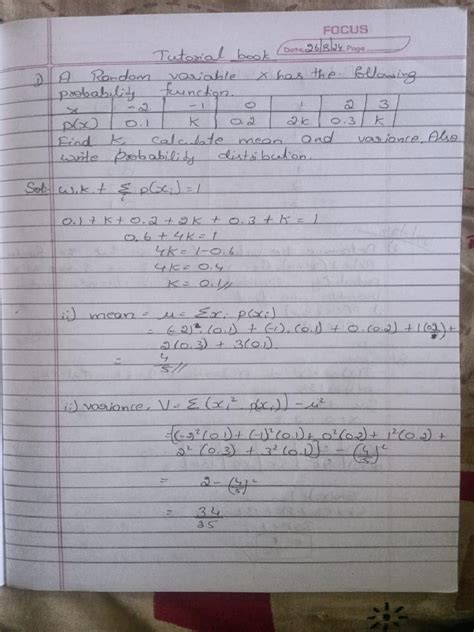 FOCUS
Date 26/8/24 Page
Tutorial book
A Random variable x has the following
probability function.
x -2 -1 0 1 2 3
p(x) 0.1 K 0.2 2K 0.3 K
Find K, calculate mean and variance. Also
write probability distribution.
Sol: w.k.t Σ p(xi) = 1
0.1 + K + 0.2 + 2K + 0.3 + K = 1
0.6 + 4K = 1
4K = 1 - 0.6
4K = 0.4
K = 0.1//
ii) mean = μ = Σxi p(xi)
= (-2) (0.1) + (-1) (0.1) + 0 (0.2) + 1(0.2) +
2(0.3) + 3(0.1)
= 4/5//
ii) variance, V = Σ (xi² p(xi)) - μ²
= [(-2²(0.1) + (-1)²(0.1) + 0²(0.2) + 1²(0.2) +
2²(0.3) + 3²(0.1)] - (4/5)²
= 2 - (4/5)²
= 34/25